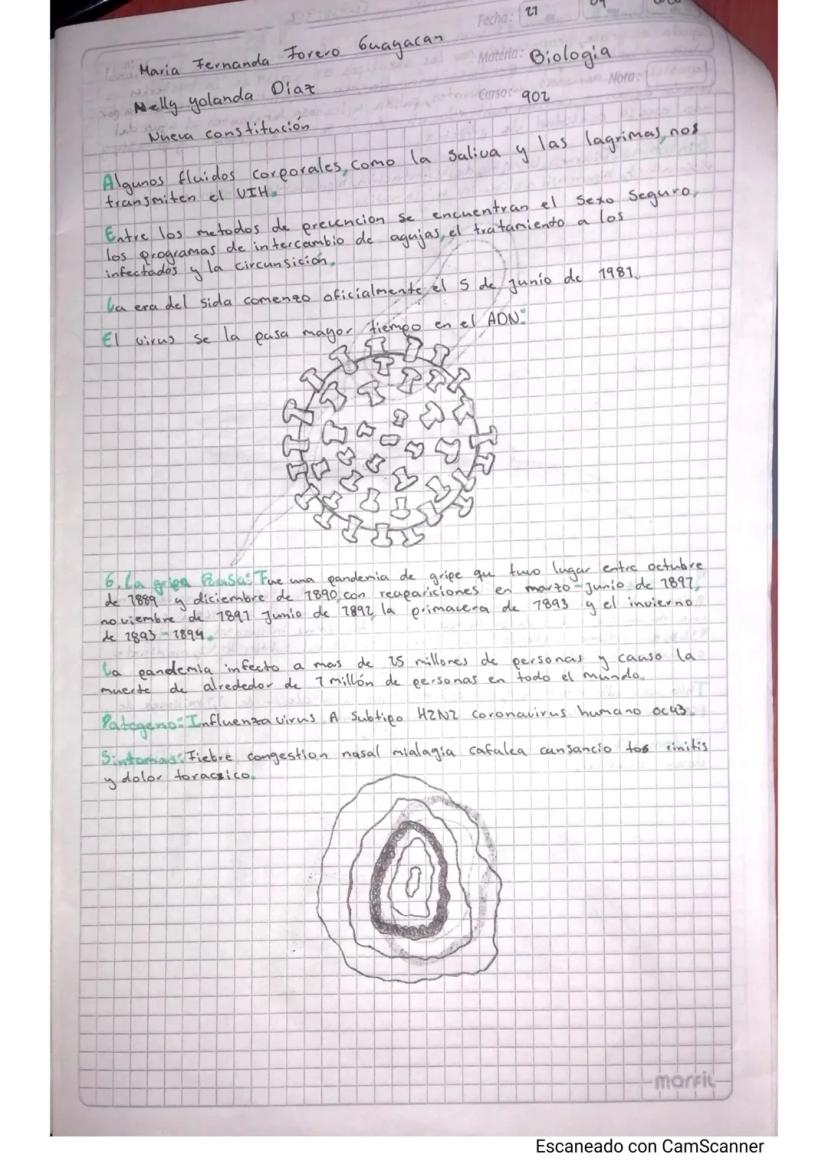 Fecha: 27 04
Maria Fernanda Forero Guayacan
Materia: Biologia
Nota:
Nelly yolanda Diaz
Curso: 902
Nueva constitución
Algunos fluidos corporales, como la saliva y las lagrimas, nos
transmiten el VIH.
Entre los metodos de prevencion se encuentran el sexo seguro,
los programas de intercambio de agujas, el tratamiento a los
infectados y la circunsición.
La era del sida comenzo oficialmente el 5 de junio de 1981.
El virus se la pasa mayor tiempo en el ADN:
6. La gripa Rusa: Fue una pandemia de gripe que tuvo lugar entre octubre
de 1889 y diciembre de 1890, con reapariciones en marzo-junio de 1891,
noviembre de 1891 Junio de 1892, la primavera de 1893 y el invierno
de 1893-1894.
La pandemia infecto a mas de 25 millores de personas y causo la
muerte de alrededor de 1 millón de personas en todo el mundo.
Patogeno: Influenzavirus A Subtipo H2N2 coronavirus humano OC43.
Sintomas: Fiebre congestion nasal mialagia cafalea cansancio tos rinitis
y dolor toracsico.
marfil
Escaneado con CamScanner